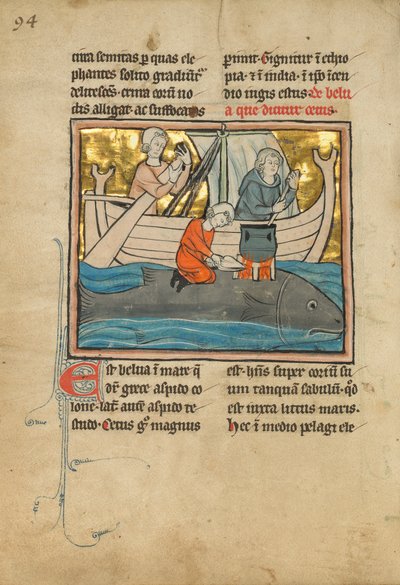 94
circa semitas ꝑ quas ele
phantes solito gradiūt᷑
delitescēs . crura eoꝝ no
dis alligat . ac suffocatos
ꝑimit . Gignitur ī ethio
pia . ⁊ ī india . ī ip̄o īcen
dio iugis estus . De belu
a que dicitur cetus .
Est belua ī mare q̄
dr̄ grece aspido co
lone . lati᷑ aut̄ aspido te
studo . Cetus gͦ magnus
est . hn̄s super coriū su
um tanquā sabulū . qd̓
est iuxta littus maris .
Hec ī medio pelagi ele